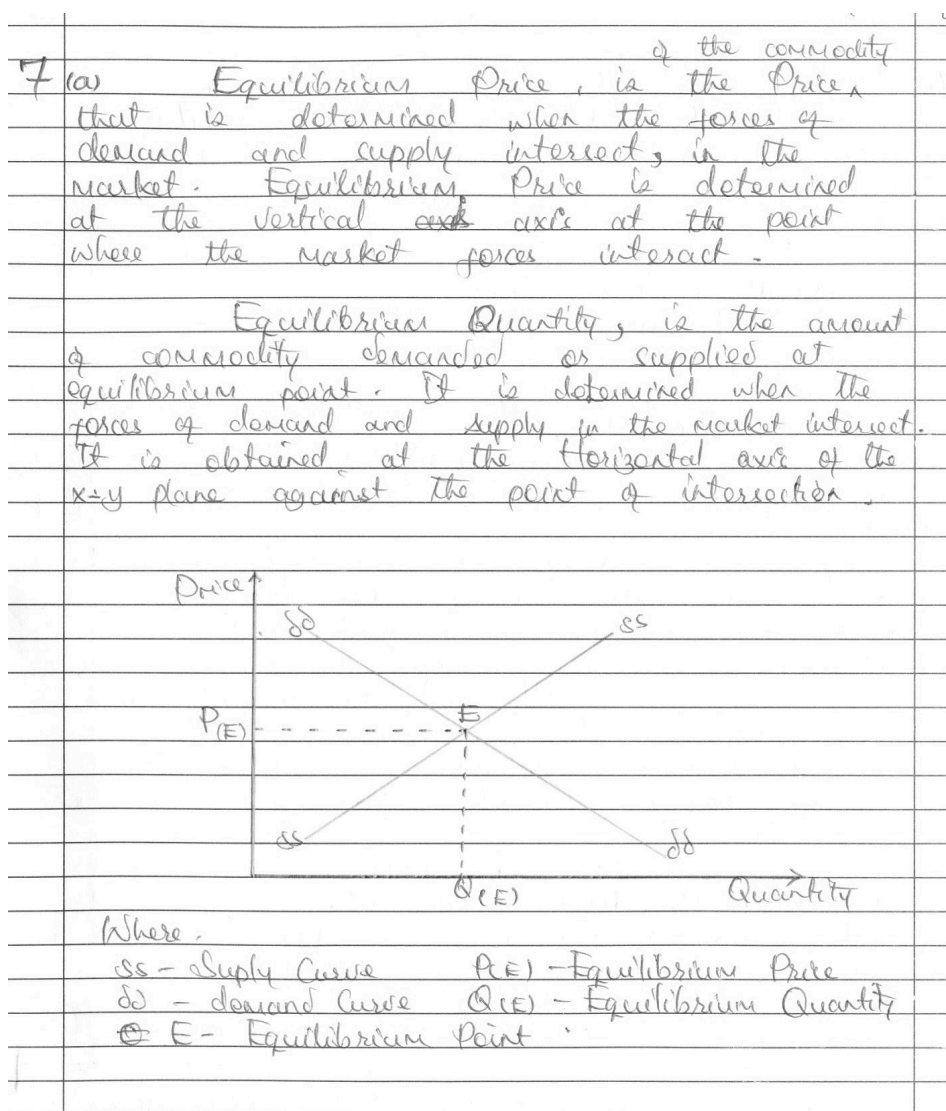 of the commodity
7 (a) Equilibrium Price, is the Price ^
that is determined when the forces of
demand and supply intersect, in the
market. Equilibrium Price is determined
at the vertical axis at the point
where the market forces interact.
Equilibrium Quantity, is the amount
of commodity demanded or supplied at
equilibrium point. It is determined when the
forces of demand and supply in the market intersect.
It is obtained at the Horizontal axis of the
x-y plane against the point of intersection.
Price
dd ss
P(E) E
ss dd
Q(E) Quantity
Where.
ss - Suply Curve P(E) - Equilibrium Price
dd - demand Curve Q(E) - Equilibrium Quantity
E - Equilibrium Point